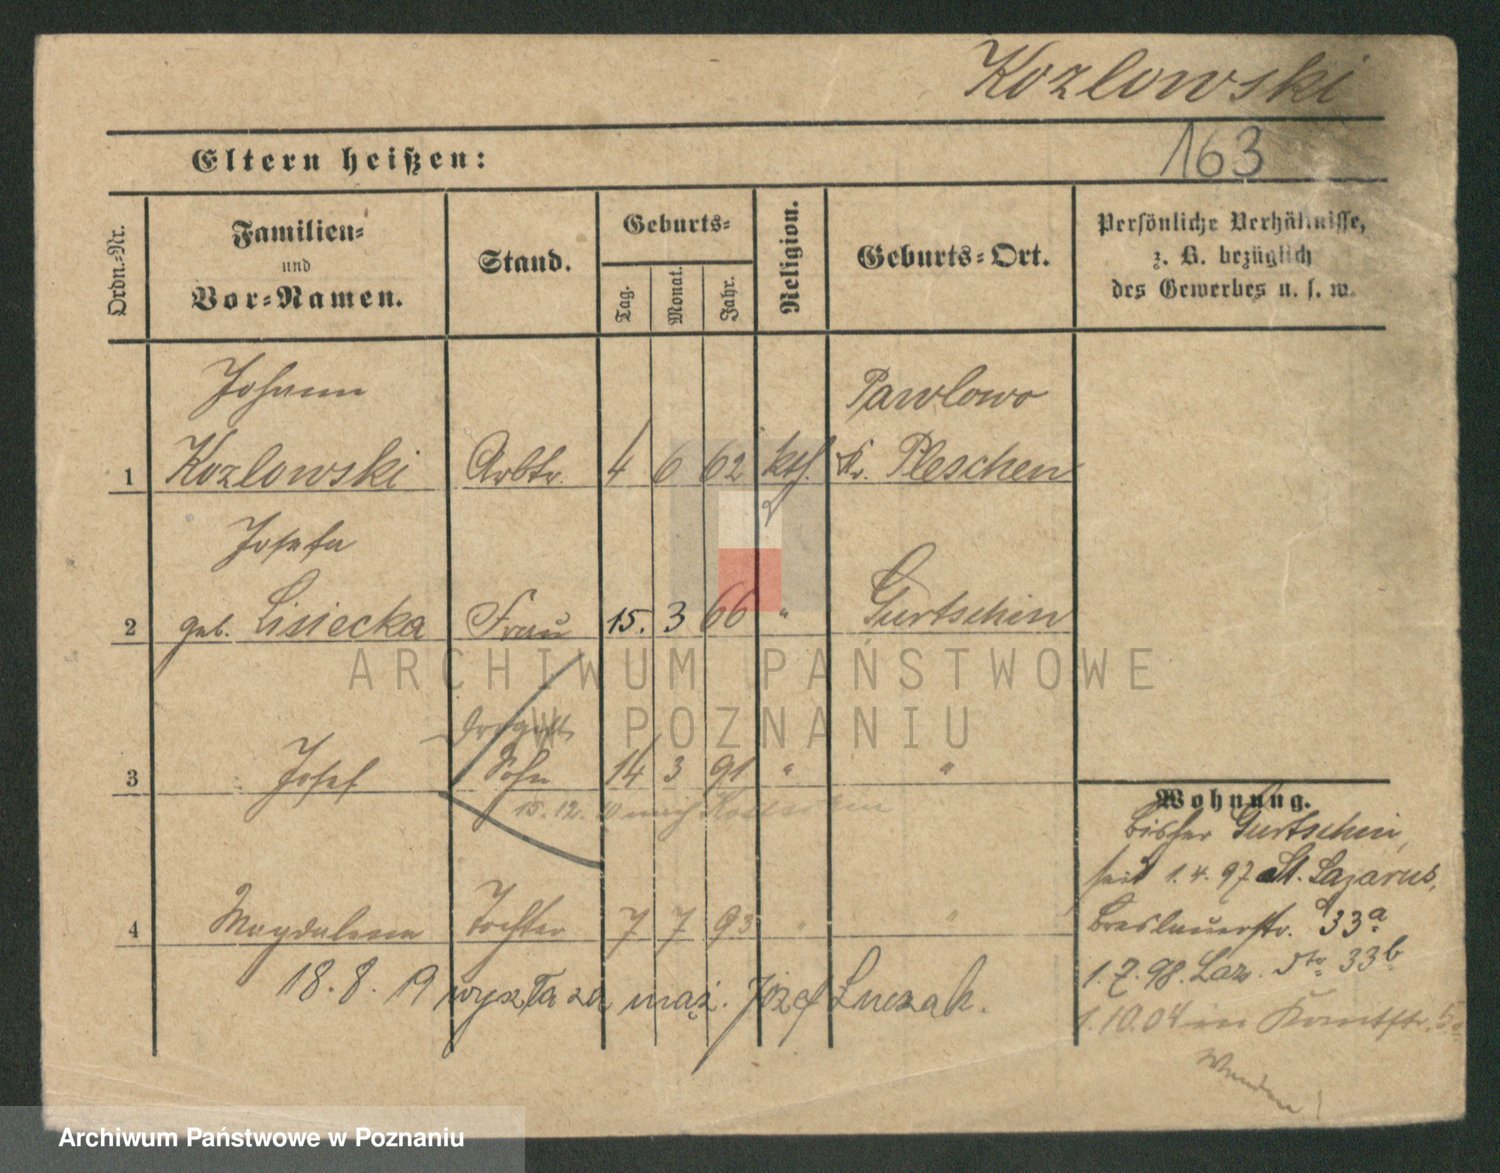 Kozlowski
163
Eltern heißen:
Ordn.-Nr.
Familien-
und
Vor-Namen.
Stand.
Geburts-
Tag.
Monat.
Jahr.
Religion.
Geburts-Ort.
Persönliche Verhältnisse,
z. B. bezüglich
des Gewerbes u. s. w.
Johann Pawlowo
1 Kozlowski Arbtr. 4 6 62 kth. Kr. Pleschen
Josefa
2 geb. Lisiecka Frau 15. 3 66 " Gurtschin
3 Josef Sohn 14 3 91 " "
15. 12. nach
4 Magdalena Tochter 7 7 93 " "
18. 8. 19 wyszła za mąż. Józef Luczak.
Wohnung.
bisher Gurtschin,
seit 1. 4. 97 St. Lazarus,
Breslauerstr. 33a
1. 7. 98. Laz. dto 33b
1. 10. 04 in Kantstr. 5
Wenden!
ARCHIWUM PAŃSTWOWE
W POZNANIU
Archiwum Państwowe w Poznaniu